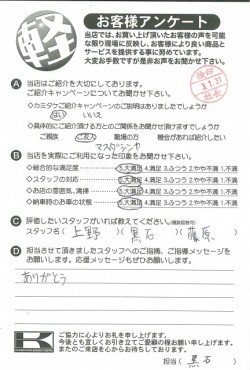 軽
お客様アンケート
当店では、お買い上げ頂いたお客様の声を可能な
限り現場に反映し、お客様により良い商品と
サービスを提供する事に努めています。
大変お手数ですが是非お声をお聞かせ下さい。
A 当店はご紹介を大切にしております。
ご紹介キャンペーンについてお聞かせ下さい。
◇カミタケご紹介キャンペーンの説明はありましたでしょうか
はい いいえ
◇具体的にご紹介頂ける方とのご関係をお聞かせ頂けますでしょうか
ご親族 ご友人 職場の方 機会があれば紹介したい
B 当店を実際にご利用になった印象をお聞かせ下さい。
◇総合的な満足度 5.大満足 4.満足 3.ふつう 2.やや不満 1.不満
◇スタッフの対応 5.大満足 4.満足 3.ふつう 2.やや不満 1.不満
◇お店の雰囲気、清掃 5.大満足 4.満足 3.ふつう 2.やや不満 1.不満
◇納車時のお車の状態 5.大満足 4.満足 3.ふつう 2.やや不満 1.不満
C 評価したいスタッフがいれば教えてください。
スタッフ名( 上野 )( 黒石 )( 藤原 )
D 担当させて頂きましたスタッフへのご指摘、ご指導メッセージを
お願いします。応援メッセージもぜひお願いします。
ありがとう
K
ご協力に心よりお礼を申し上げます。
今後とも宜しくお引き立てご愛顧の程お願い申し上げます。
またのご来店を心からお待ちしております。
担当( 黒石 )